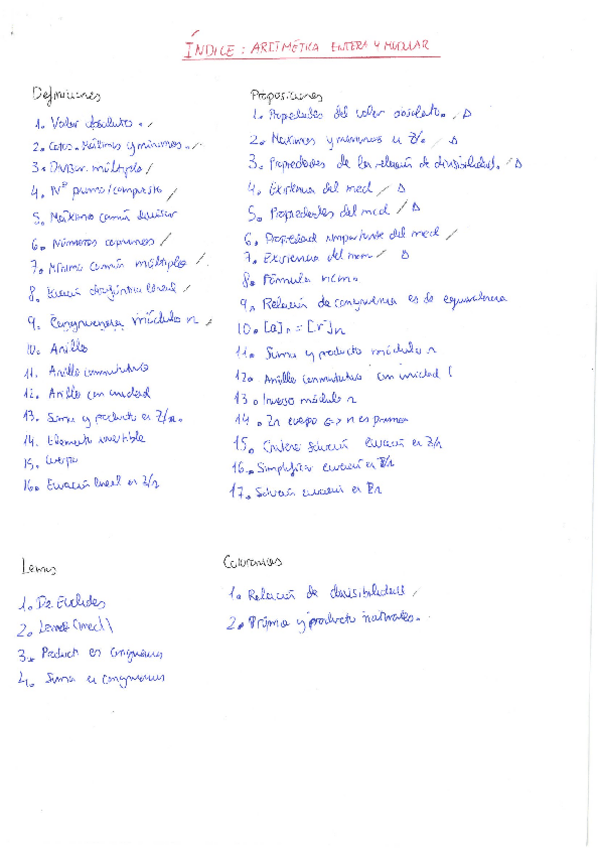 ÍNDICE: ARITMÉTICA ENTERA Y MODULAR
Definiciones
1. Valor absoluto. /
2. Cotas. Máximos y mínimos. /
3. Divisor. múltiplo /
4. Nº primo/compuesto /
5. Máximo común divisor
6. Números coprimos /
7. Mínimo común múltiplo /
8. Ecuación diofántica lineal /
9. Congruencia módulo n /
10. Anillo
11. Anillo conmutativo
12. Anillo con unidad
13. Suma y producto en Z/n.
14. Elemento invertible
15. Cuerpo
16. Ecuación lineal en Z/n
Proposiciones
1. Propiedades del valor absoluto. / Δ
2. Máximos y mínimos en Z/. / Δ
3. Propiedades de la relación de divisibilidad. / Δ
4. Existencia del mcd / Δ
5. Propiedades del mcd / Δ
6. Propiedad importante del mcd /
7. Existencia del mcm / Δ
8. Fórmula mcm
9. Relación de congruencia es de equivalencia
10. [a]n = [r]n
11. Suma y producto módulo n
12. Anillo conmutativo con unidad
13. Inverso módulo n
14. Zn cuerpo <=> n es primo
15. Criterio solución ecuación en Z/n
16. Simplificar ecuación en Z/n
17. Solución ecuación en Zn
Lemas
1. De Euclides
2. Lema (mcd)
3. Producto en congruencias
4. Suma en congruencias
Corolarios
1. Relación de divisibilidad /
2. Primo y producto naturales.